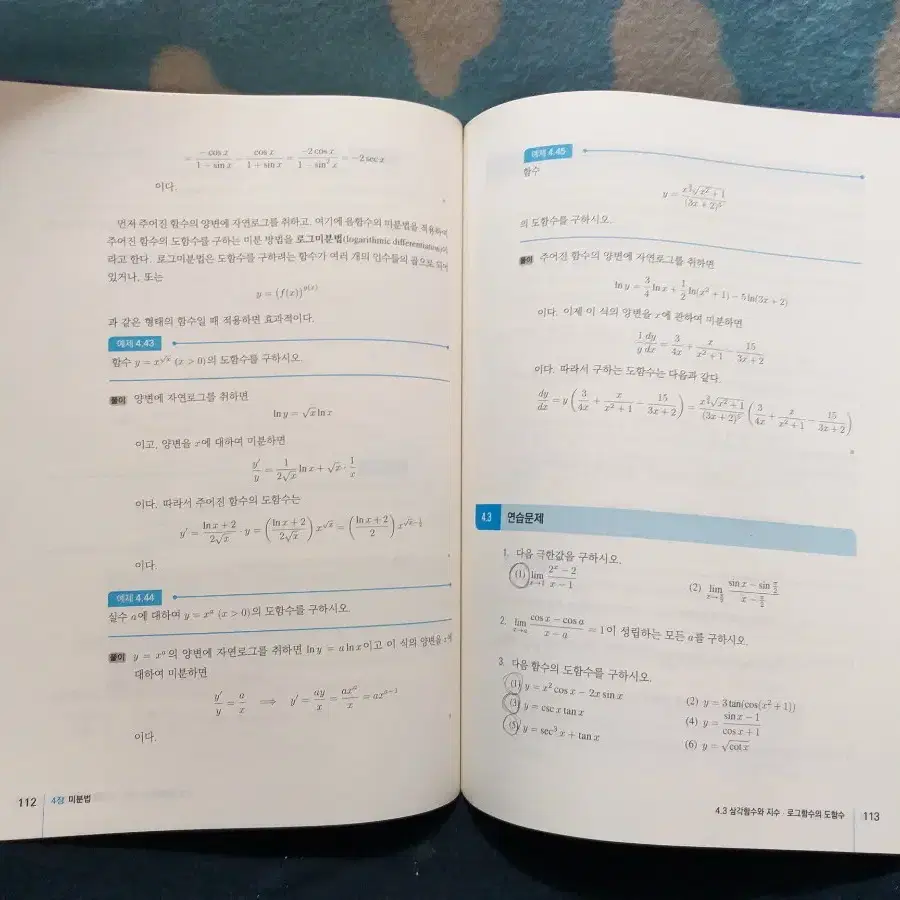 = \frac{-\cos x}{1-\sin x} - \frac{\cos x}{1+\sin x} = \frac{-2\cos x}{1-\sin^2 x} = -2\sec x
이다.
먼저 주어진 함수의 양변에 자연로그를 취하고, 여기에 음함수의 미분법을 적용하여
주어진 함수의 도함수를 구하는 미분 방법을 로그미분법(logarithmic differentiation)이
라고 한다. 로그미분법은 도함수를 구하려는 함수가 여러 개의 인수들의 곱으로 되어
있거나, 또는
y = (f(x))^{g(x)}
과 같은 형태의 함수일 때 적용하면 효과적이다.
예제 4.43
함수 y = x^{\sqrt{x}} (x > 0)의 도함수를 구하시오.
풀이 양변에 자연로그를 취하면
\ln y = \sqrt{x} \ln x
이고, 양변을 x에 대하여 미분하면
\frac{y'}{y} = \frac{1}{2\sqrt{x}} \ln x + \sqrt{x} · \frac{1}{x}
이다. 따라서 주어진 함수의 도함수는
y' = \frac{\ln x + 2}{2\sqrt{x}} · y = \left(\frac{\ln x + 2}{2\sqrt{x}}\right) x^{\sqrt{x}} = \left(\frac{\ln x + 2}{2}\right) x^{\sqrt{x} - \frac{1}{2}}
이다.
예제 4.44
실수 a에 대하여 y = x^a (x > 0)의 도함수를 구하시오.
풀이 y = x^a의 양변에 자연로그를 취하면 \ln y = a \ln x이고 이 식의 양변을 x에
대하여 미분하면
\frac{y'}{y} = \frac{a}{x} ⟹ y' = \frac{ay}{x} = \frac{ax^a}{x} = ax^{a-1}
이다.
112 4장 미분법
예제 4.45
함수
y = \frac{x^{\frac{3}{4}}\sqrt{x^2+1}}{(3x+2)^5}
의 도함수를 구하시오.
풀이 주어진 함수의 양변에 자연로그를 취하면
\ln y = \frac{3}{4} \ln x + \frac{1}{2} \ln(x^2+1) - 5\ln(3x+2)
이다. 이제 이 식의 양변을 x에 관하여 미분하면
\frac{1}{y}\frac{dy}{dx} = \frac{3}{4x} + \frac{x}{x^2+1} - \frac{15}{3x+2}
이다. 따라서 구하는 도함수는 다음과 같다.
\frac{dy}{dx} = y\left(\frac{3}{4x} + \frac{x}{x^2+1} - \frac{15}{3x+2}\right) = \frac{x^{\frac{3}{4}}\sqrt{x^2+1}}{(3x+2)^5}\left(\frac{3}{4x} + \frac{x}{x^2+1} - \frac{15}{3x+2}\right)
4.3 연습문제
1. 다음 극한값을 구하시오.
(1) \lim_{x→1} \frac{2^x-2}{x-1} (2) \lim_{x→\frac{π}{2}} \frac{\sin x - \sin\frac{π}{2}}{x-\frac{π}{2}}
2. \lim_{x→a} \frac{\cos x - \cos a}{x-a} = 1이 성립하는 모든 a를 구하시오.
3. 다음 함수의 도함수를 구하시오.
(1) y = x^2 \cos x - 2x \sin x (2) y = 3\tan(\cos(x^2+1))
(3) y = \csc x \tan x (4) y = \frac{\sin x - 1}{\cos x + 1}
(5) y = \sec^3 x + \tan x (6) y = \sqrt{\cot x}
4.3 삼각함수와 지수 · 로그함수의 도함수 113